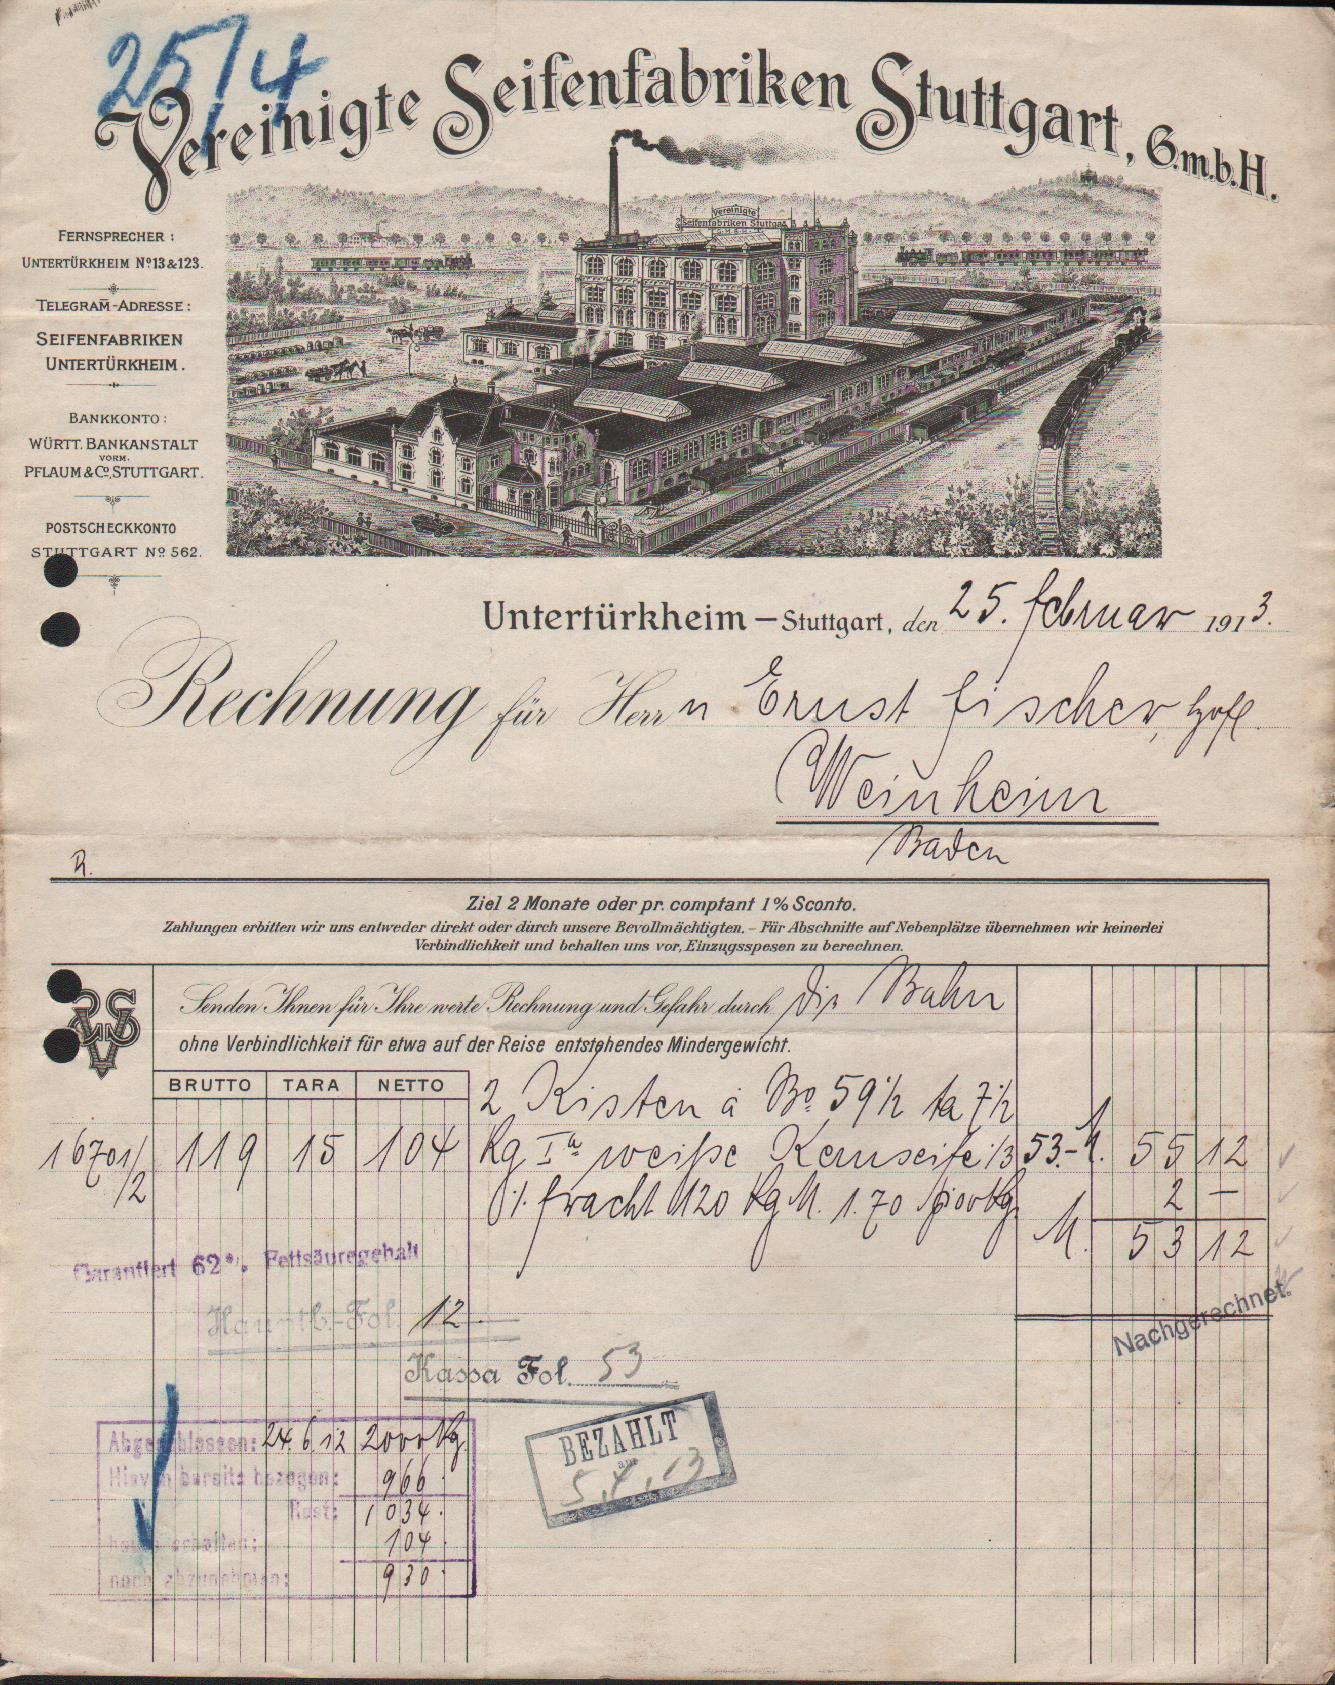 25/4
Vereinigte Seifenfabriken Stuttgart, G.m.b.H.
Vereinigte
Seifenfabriken Stuttgart
FERNSPRECHER:
UNTERTÜRKHEIM No 13 & 123.
TELEGRAM̅-ADRESSE:
SEIFENFABRIKEN
UNTERTÜRKHEIM.
BANKKONTO:
WÜRTT. BANKANSTALT
VORM.
PFLAUM & Co, STUTTGART.
POSTSCHECKKONTO
STUTTGART No 562.
Untertürkheim – Stuttgart, den 25. Februar 1913.
Rechnung für Herrn Ernst Fischer, Hofl.
Weinheim
Baden
R.
Ziel 2 Monate oder pr. comptant 1% Sconto.
Zahlungen erbitten wir uns entweder direkt oder durch unsere Bevollmächtigten. – Für Abschnitte auf Nebenplätze übernehmen wir keinerlei
Verbindlichkeit und behalten uns vor, Einzugsspesen zu berechnen.
VSS
Senden Ihnen für Ihre werte Rechnung und Gefahr durch die Bahn
ohne Verbindlichkeit für etwa auf der Reise entstehendes Mindergewicht.
BRUTTO TARA NETTO
2 Kisten à Bo. 59 1/2 ta 7 1/2
16701/2 119 15 104 Kg Ia weiße Kernseife 1/3 53.- M. 55 12
./. Fracht 120 Kg M. 1.70 p 100 Kg. 2 –
M. 53 12
Garantiert 62% Fettsäuregehalt
Hauptb.-Fol. 12.
Nachgerechnet.
Kassa Fol. 53
BEZAHLT
am
5.4.13
Abgeschlossen: 24.6.12 2000 Kg.
Hievon bereits bezogen: 966.
Rest: 1034.
heute erhalten: 104.
noch abzunehmen: 930.